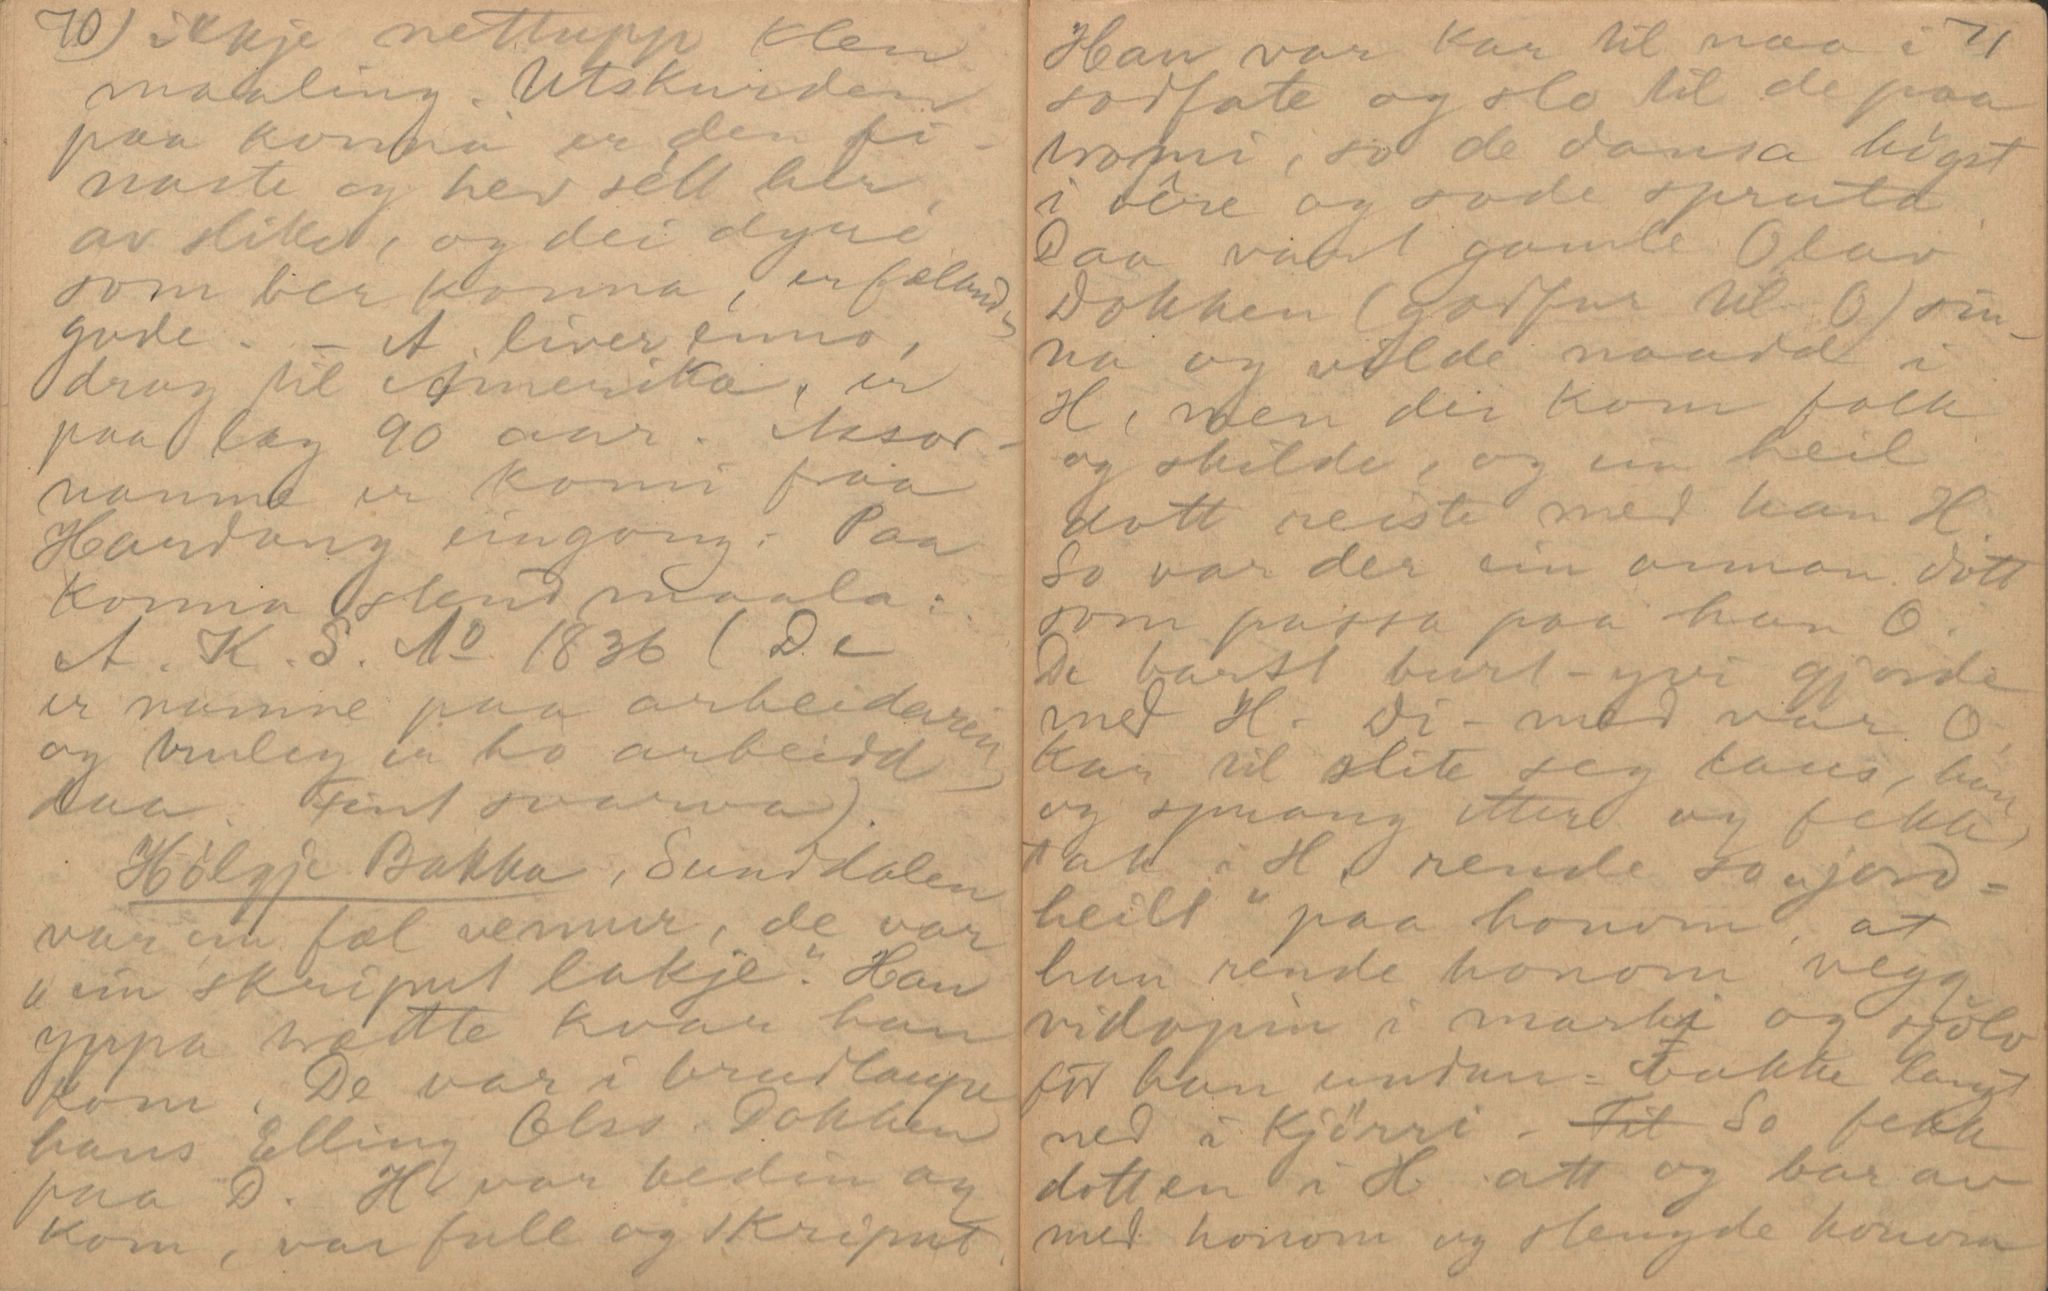 70) ikkje nettupp klen
maaling. Utskurden
paa konna er den fi-
naste eg hev sett her,
av slike, og dei dyri
som ber konna, er fælande
gode. - A. liver enno,
drog til Amerika, er
paa lag 90 aar. Assor-
namne er komi fraa
Hardang eingong. Paa
konna stend maala:
A. K. S. No 1836 (De
er namne paa arbeidaren
og truleg er ho arbeidd
daa. Fint svarva).
Hølgje Bakka, Sunddalen
var ein fæl vemur, de var
"ein skriput lakje". Han
yppa trætte kvar han
kom. De var i brudlaupe
hans Elling Olss. Dokken
paa D. H. var bedin og
kom, var full og skriput.
71
Han var kar til naa i
sodfate og slo til de paa
tromi, so de dansa högst
i vêre og sode spruta.
Daa vart gamle Olav
Dokken (godfar til O) sin-
na og vilde naadd i
H, men dei kom folk
og skilde, og ein heil
dott reiste med han H.
So var der ein annan dott
som passa paa han O.
De barst burt-yvi gjorde
med H. Di-med var O.
kar til slite seg laus, han
og sprang etter og fekk
tak i H, rende so "jord-
heilt" paa honom, at
han rende honom vegg
vidopin i marki og sjölv
för han undan-bakke langt
ned i kjörri. Til So fekk
dotten i H att og bar av
med honom og slengde honom